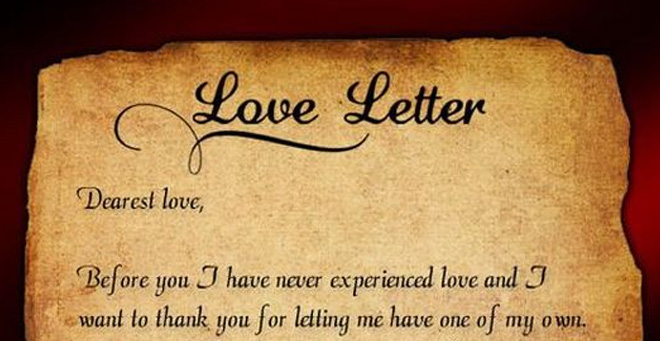 Love Letter
Dearest love,
Before you I have never experienced love and I
want to thank you for letting me have one of my own.